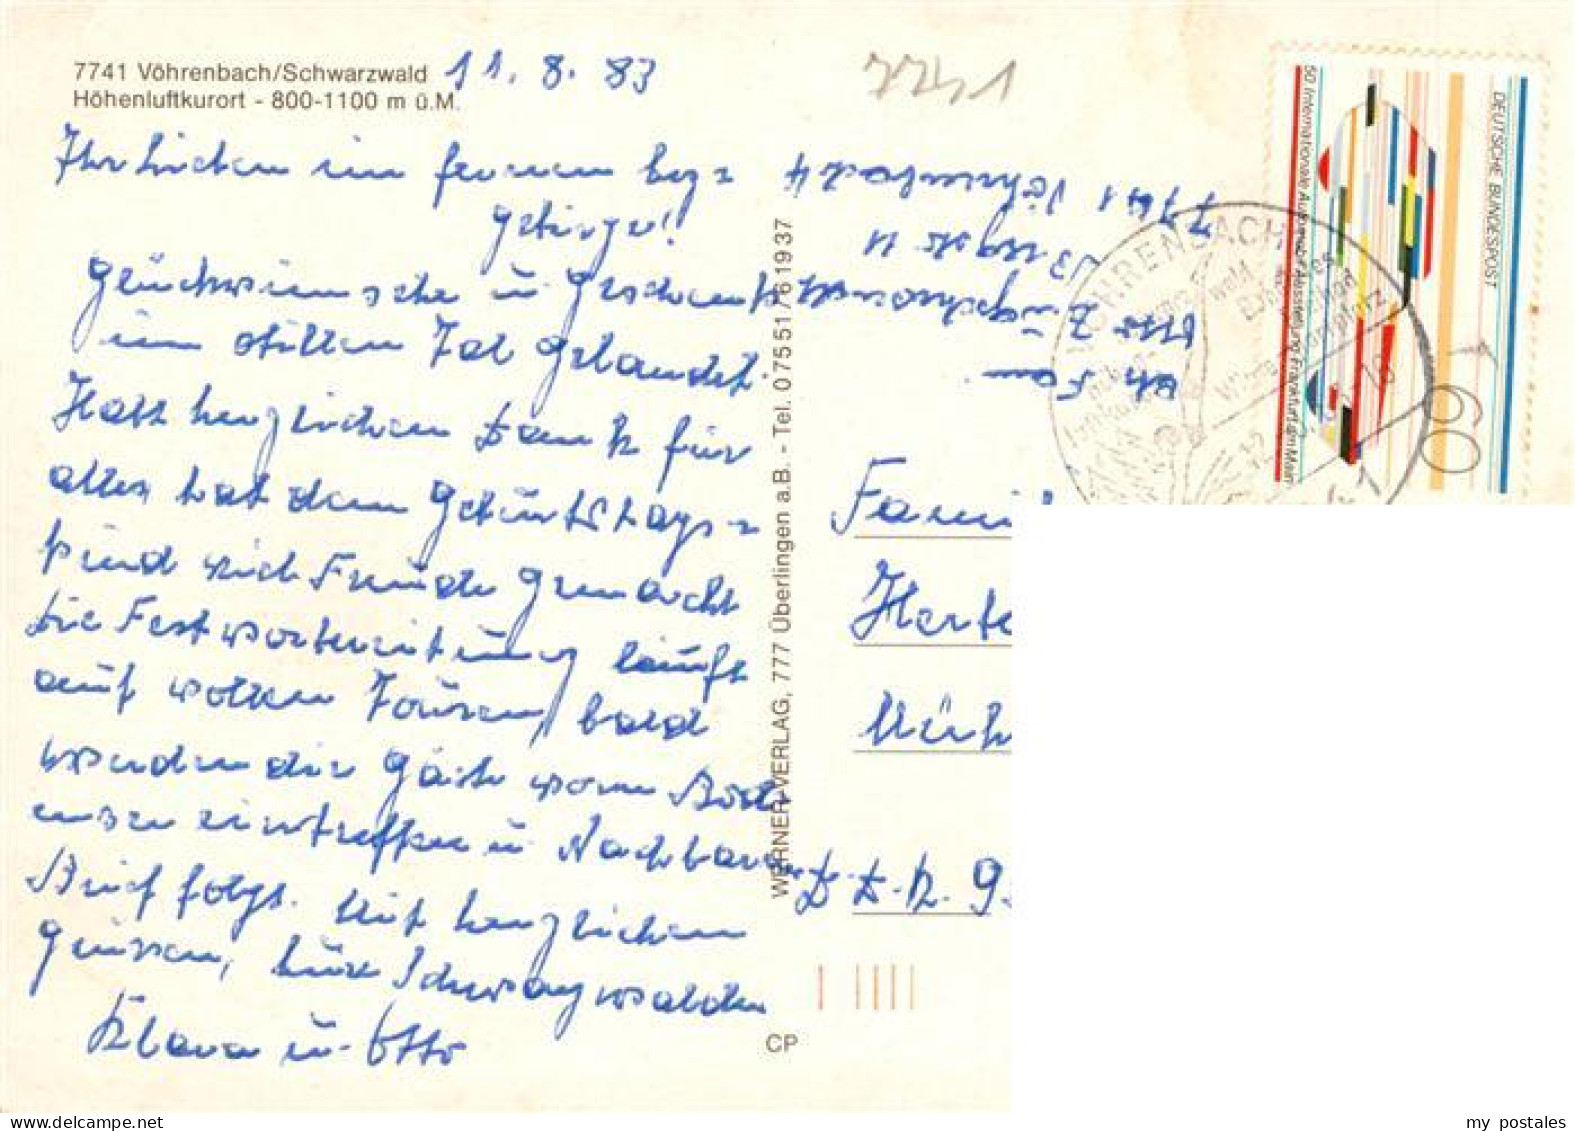 7741 Vöhrenbach/Schwarzwald
Höhenluftkurort - 800-1100 m ü.M.
11. 8. 83
7741
Ihr Lieben im fernen
gebirge!
Glückwünsche u. Geschenk
im stillen Tal gelandet.
Habt herzlichen Dank für
alles hat dem Geburtstags-
kind viel Freude gemacht
Die Festvorbereitung läuft
auf vollen Touren, bald
werden die Gäste vom Bod
ensee eintreffen u. Nachbarn
Brief folgt. Mit herzlichen
Grüssen, Eure Schwarzwälder
Klara u. Otto
Abs. Fam.
Otto
7741 Vöhrenbach
WERNER-VERLAG, 777 Überlingen a.B. - Tel. 07551/761937
CP
Fami
D.D.R. 9
DEUTSCHE BUNDESPOST
50. Internationale Automobil-Ausstellung Frankfurt am Main
60
VÖHRENBACH
my postales